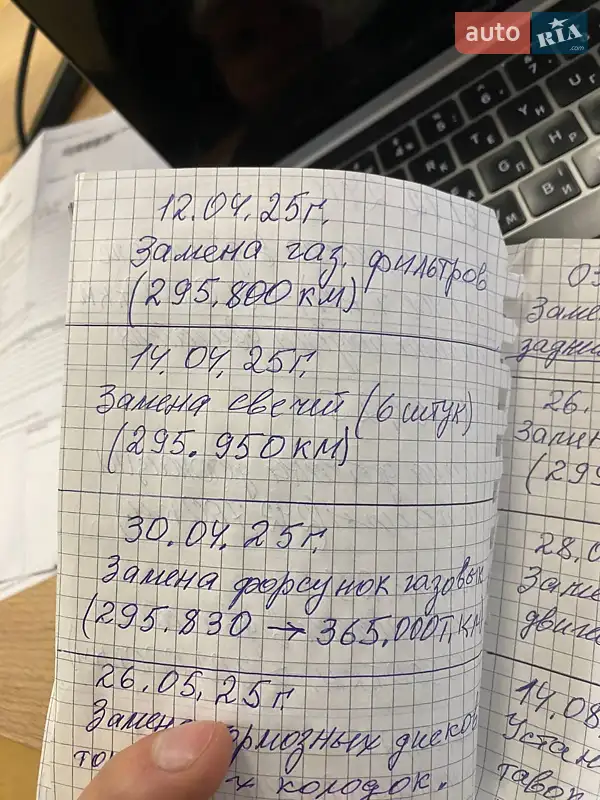 auto RIA .com
12.04.25г.
Замена газ. фильтров
(295.800 км)
14.04.25г.
Замена свечей (6 штук)
(295.950 км)
30.04.25г.
Замена форсунок газовых
(295.830 → 365.000т.км
26.05.25г
дисков
колодок.
03
Заме
задни
26.
Замен
(299
28.0
Заме
двига
14.08
Устан
тавок